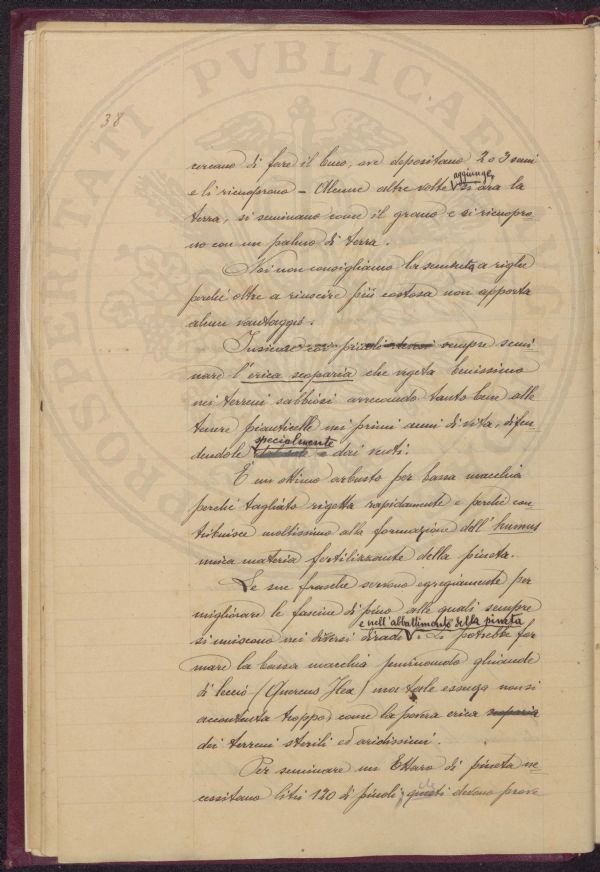 PROSPERITATI PVBLICAE
38
cercano di fare il buco, ove depositano 2 o 3 semi
e li ricuoprono - Alcune altre volte aggiunge, si ara la
terra, si seminano come il grano e si ricuopro
no con un palmo di terra.
Noi non consigliamo la sementa a righe
perché oltre a riuscire più costosa non apporta
alcun vantaggio.
Insieme coi pinoli sempre semi-
nare l'erica scoparia che vegeta benissimo
nei terreni sabbiosi arrecando tanto bene alle
tenere pianticelle nei primi anni di vita, difen
dendole specialmente dai venti.
È un ottimo arbusto per bassa macchia
perché tagliato rigetta rapidamente e perché con-
tribuisce moltissimo alla formazione dell'humus
unica materia fertilizzante della pineta.
Le sue frasche servono egregiamente per
migliorare le fascine di pino alle quali sempre
si uniscono nei diversi diradi e nell'abbattimento della pineta. Si potrebbe for
mare la bassa macchia seminando ghiande
di leccio (Quercus Ilex) ma tale essenza non si
accontenta troppo, come la erica scoparia
dei terreni sterili ed aridissimi.
Per seminare un Ettaro di pineta ne-
cessitano litri 120 di pinoli, devono prove